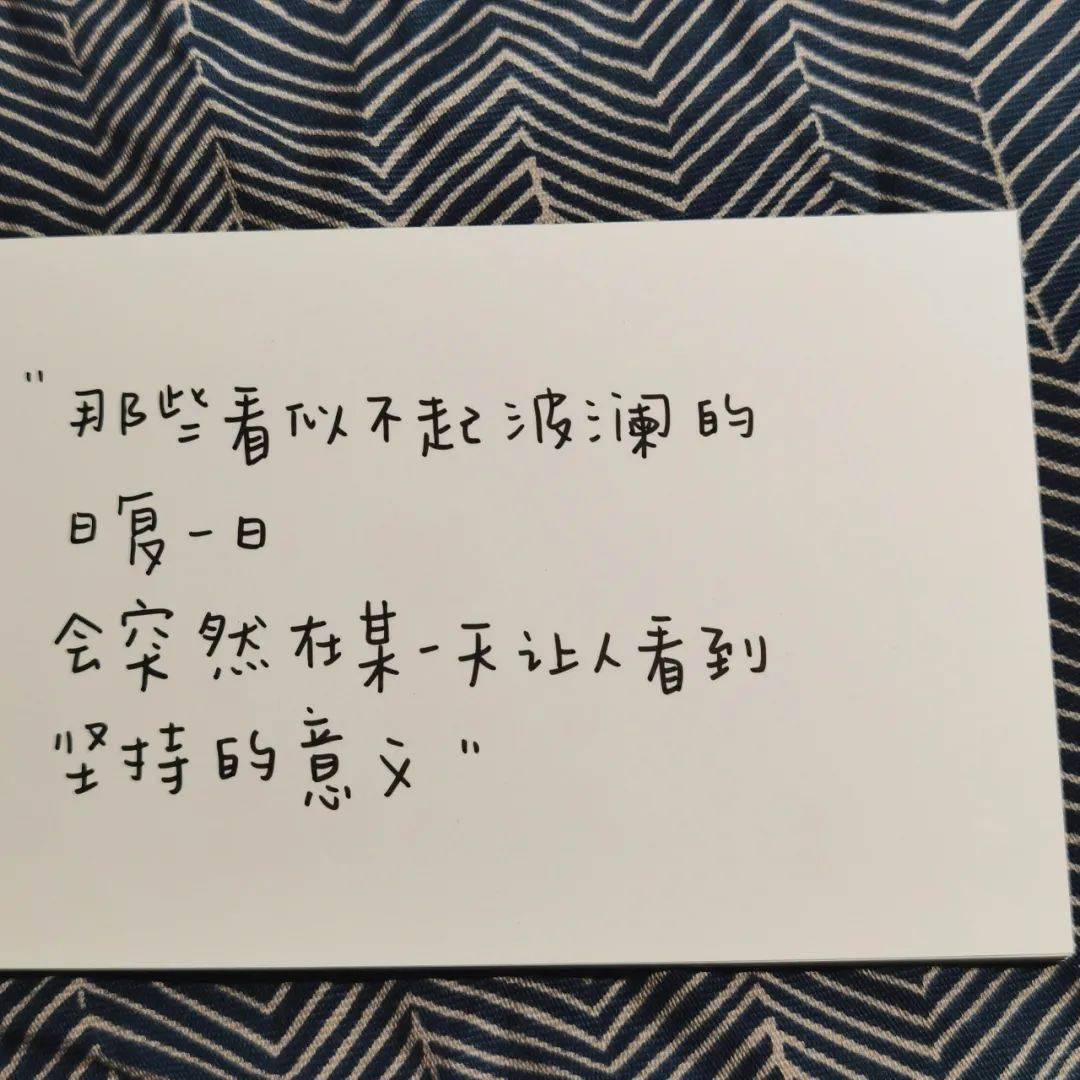 "那些看似不起波澜的
日复一日
会突然在某一天让人看到
坚持的意义"